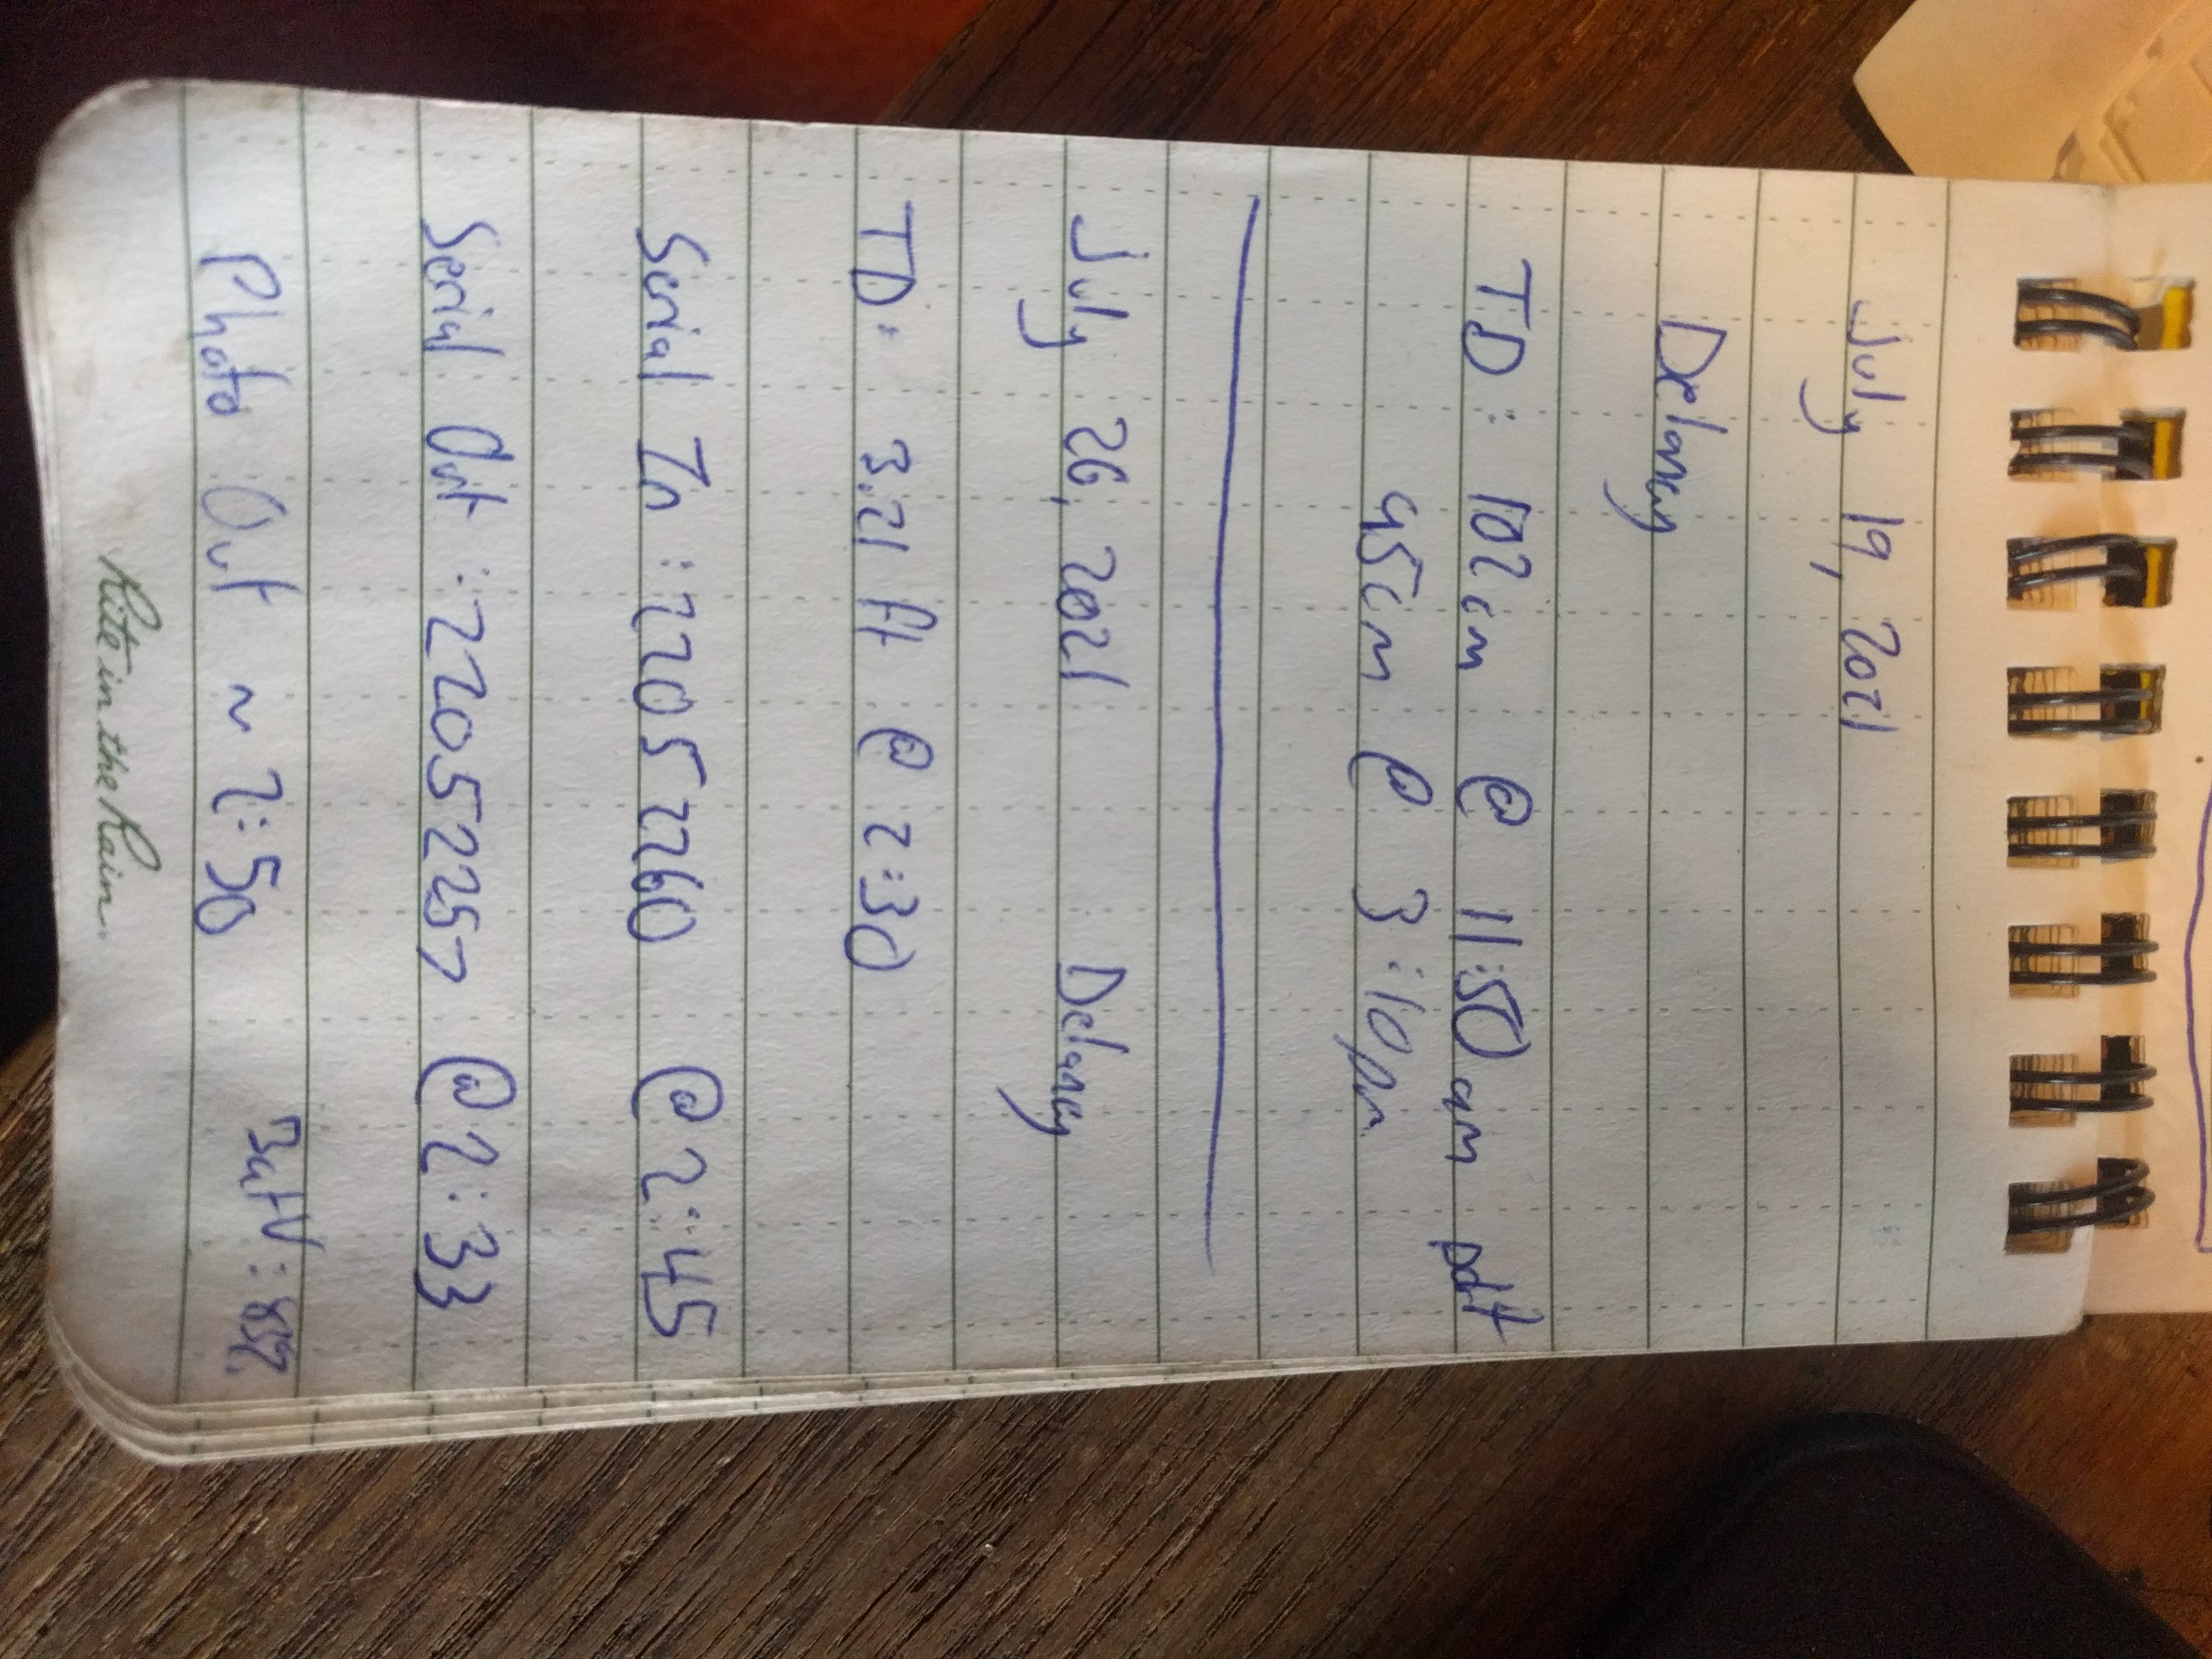 July 19, 2021
Delaney
TD: 102cm @ 11:50am pdt
95cm @ 3:10pm
July 26, 2021 Delaney
TD: 3.21 ft @ 2:30
Serial In: 22052260 @ 2:45
Serial Out: 22052257 @ 2:33
BatV: 83%
Photo Out ~ 2:50
Rite in the Rain.